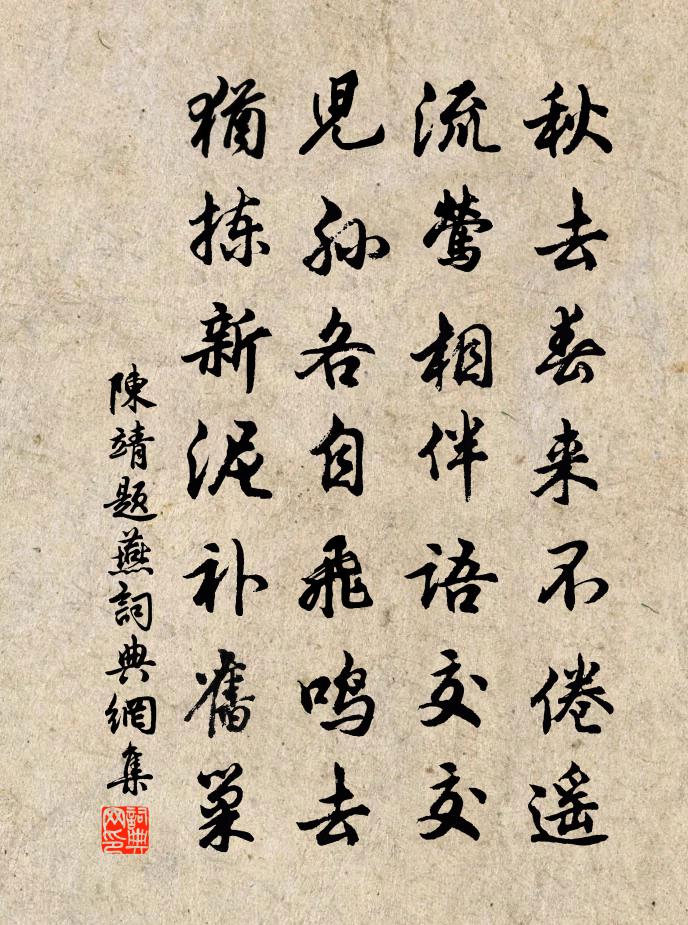 秋去春来不倦遥
流莺相伴语交交
児孙各自飛鸣去
猶拣新泥补舊巢
陳靖题燕詞典網集
詞典網印